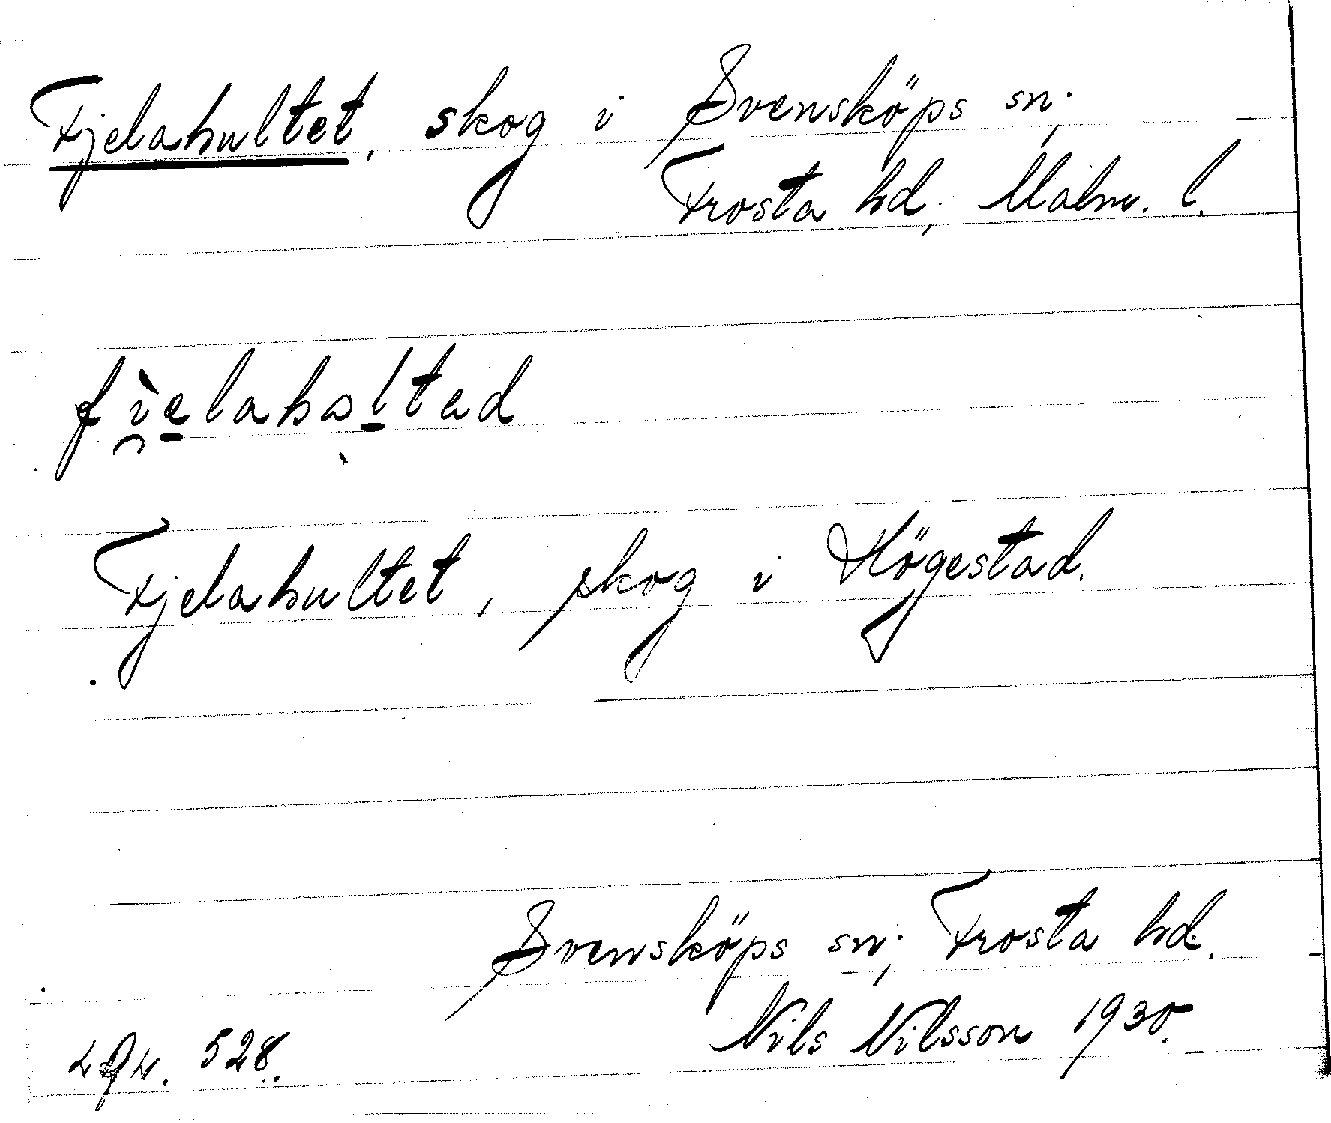 Fjelahultet, skog i Svensköps sn;
Frosta hd, Malm. l.
Fjelahultet, skog i Högestad.
Svensköps sn; Frosta hd.
Nils Nilsson 1930.
528.